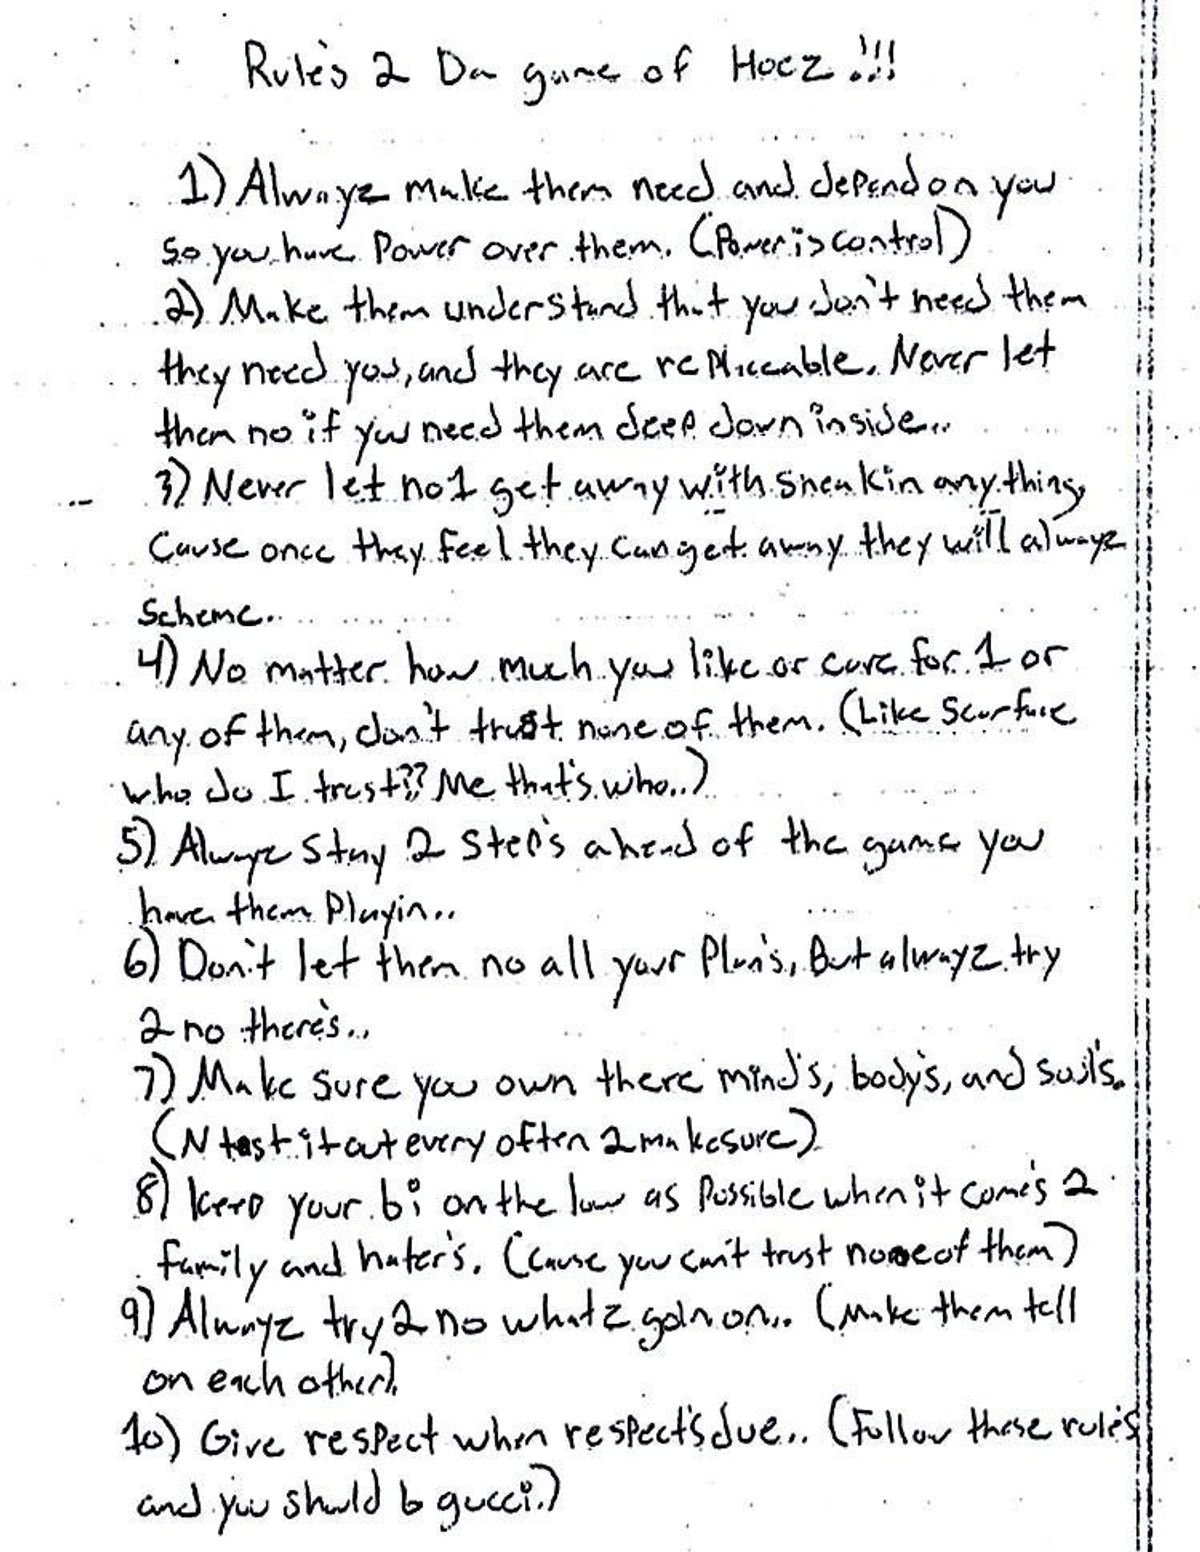 Rule's 2 Da game of Hoez !!!
1) Alwayz make them need and depend on you
so you have Power over them. (Power is control)
2) Make them understand that you don't need them
they need you, and they are replaceable. Never let
them no if you need them deep down inside..
3) Never let no1 get away with sneakin anything,
Cause once they feel they can get away they will alwayz
scheme..
4) No matter how much you like or care for 1 or
any of them, don't trust none of them. (Like Scarface
who do I trust?? Me that's who..)
5) Alwayz stay 2 step's ahead of the game you
have them Playin..
6) Don't let them no all your Plan's, But alwayz try
2 no there's..
7) Make sure you own there mind's, body's, and soul's.
(N test it out every often 2 make sure)
8) Keep your bi on the low as Possible when it come's 2
family and hater's. (Cause you can't trust none of them)
9) Alwayz try 2 no whatz goin on.. (Make them tell
on each other).
10) Give respect when respect's due.. (Follow these rule's
and you should b gucci.)